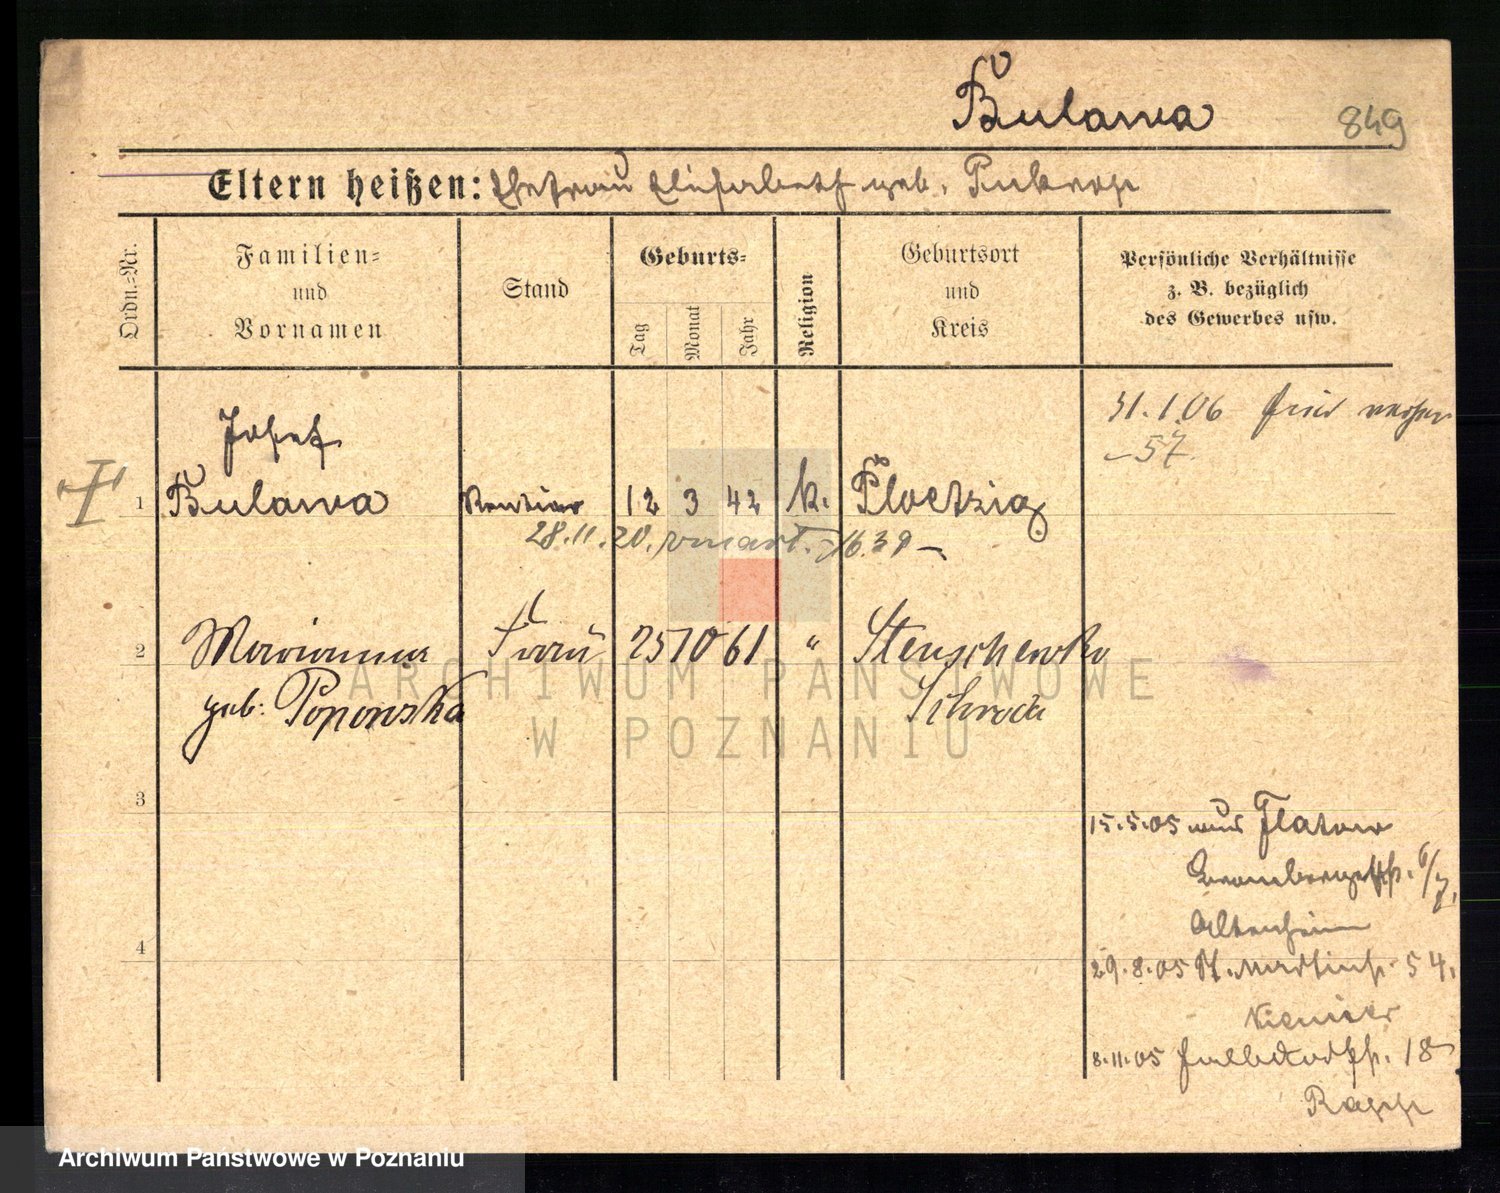 Bulawa
849
Eltern heißen: Ehefrau Elisabeth geb.
Ordn.-Nr.
Familien-
und
Vornamen
Stand
Geburts-
Tag
Monat
Jahr
Religion
Geburtsort
und
Kreis
Persönliche Verhältnisse
z. B. bezüglich
des Gewerbes usw.
31.1.06
57.
Josef
1 Bulawa Rentier 12 3 42 k. Ploetzig
28.11.20.
2 Marianna Frau 25 10 61 " Stenschewko
geb: Popowska Schroda
3
15.5.05 aus Flatow
Brombergerstr. 6/7.
Altenheim
4
29.8.05 St. Martinstr. 54.
8.11.05 Halbdorfstr. 18
ARCHIWUM PAŃSTWOWE
W POZNANIU
Archiwum Państwowe w Poznaniu